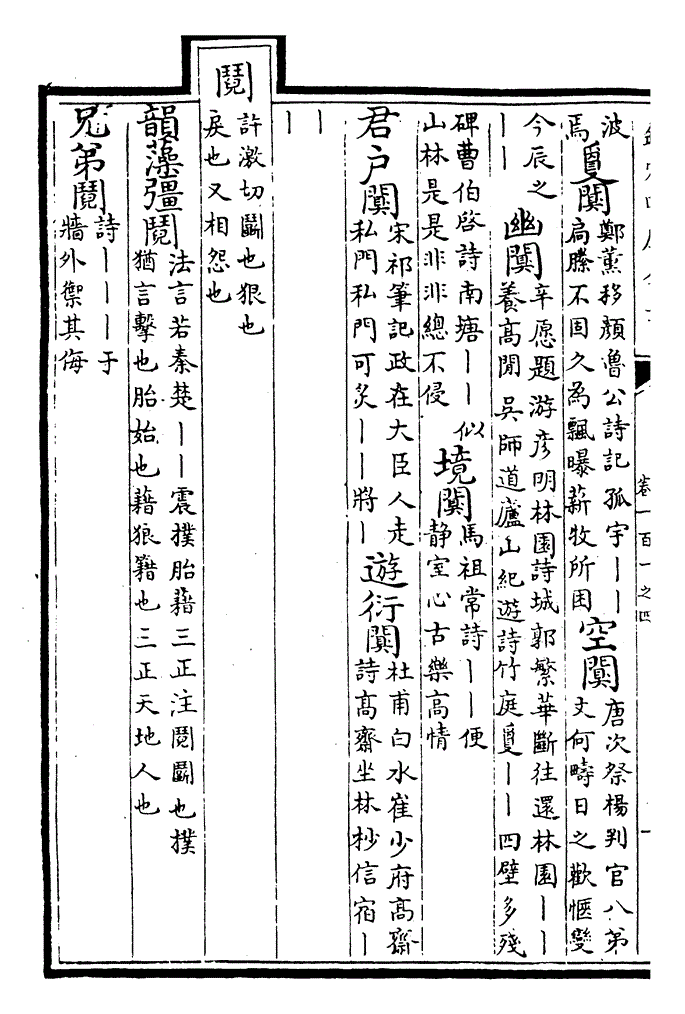 卷一百一之四
波
焉
夐闃
鄭薰移顔魯公詩記孤宇丨丨
扃縢不固久為飄曝薪牧所困
空闃
唐次祭楊判官八弟
文何疇日之歡愜變
今辰之
丨丨
幽闃
辛愿題游彦明林園詩城郭繁華斷往還林園丨丨
養高閒 吳師道廬山紀遊詩竹庭夐丨丨四壁多殘
碑曹伯啓詩南塘丨丨似
山林是是非非總不侵
境闃
馬祖常詩丨丨便
静室心古樂高情
君户闃
宋祁筆記政在大臣人走
私門私門可炙丨丨將丨
遊衍闃
杜甫白水崔少府高齋
詩高齋坐林杪信宿丨
丨
丨
鬩
許激切鬭也狠也
戾也又相怨也
韻藻彊鬩
法言若秦楚丨丨震撲胎藉三正注鬩鬭也撲
猶言擊也胎始也藉狼籍也三正天地人也
兄弟鬩
詩丨丨丨于
牆外禦其侮